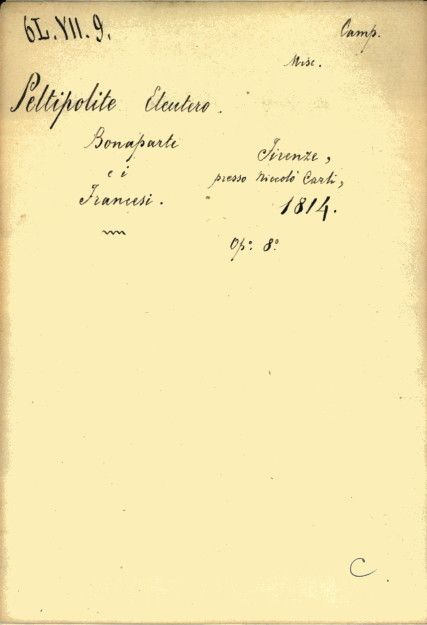 6L.VII.9.
Camp.
Misc.
Peltipolite Eleutero.
Bonaparte
e i
Francesi.
Firenze,
presso Niccolò Carli,
1814.
Op: 8º
C